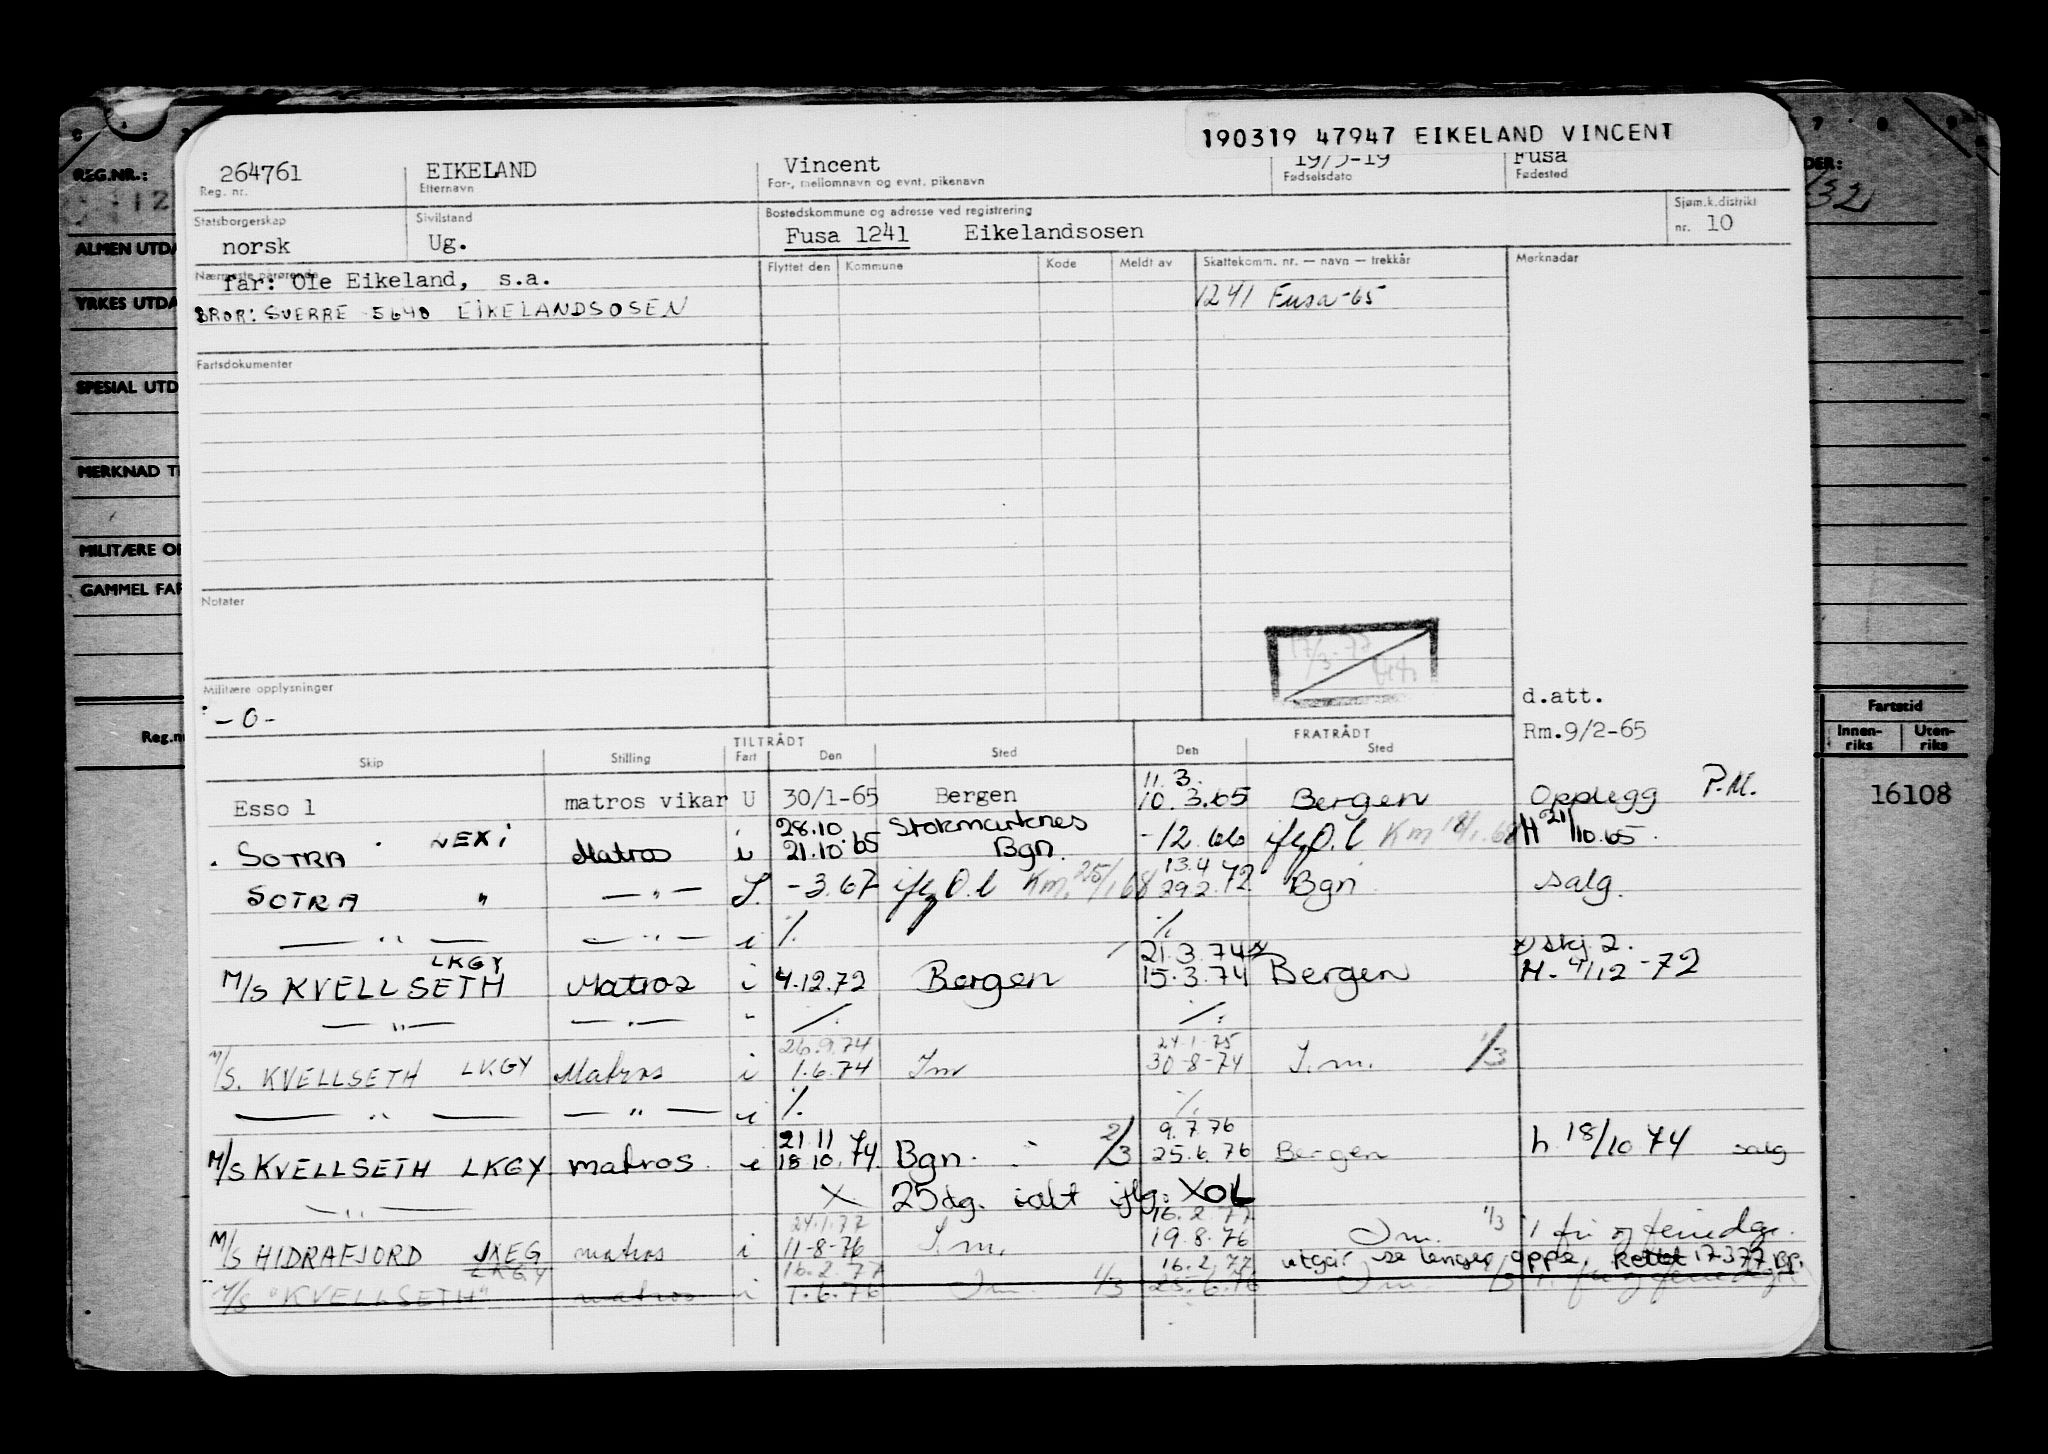 190319 47947 EIKELAND VINCENT
264761 EIKELAND Vincent 19/3-19 Fusa
Reg. nr. Etternavn For-, mellomnavn og evnt. pikenavn Fødselsdato Fødested
Statsborgerskap Sivilstand Bostedskommune og adresse ved registrering Sjøm.k.distrikt
norsk Ug. Fusa 1241 Eikelandsosen nr. 10
Nærmeste pårørende Flyttet den Kommune Kode Meldt av Skattekomm. nr. — navn — trekkår Merknader
far: Ole Eikeland, s.a.
1241 Fusa-65
BROR: SVERRE 5640 EIKELANDSOSEN
Fartsdokumenter
Notater
17/3-77
Militære opplysninger
-0-
d.att.
Rm.9/2-65
TILTRÅDT FRATRÅDT
Skip Stilling Fart Den Sted Den Sted
11.3.
Esso 1 matros vikar U 30/1-65 Bergen 10.3.65 Bergen Opplegg P.M.
28.10 Stokmarknes
SOTRA LEXI Matros i 21.10.65 Bgn. -12.66 ifg O.l Km 18/1.68 H 21/10.65.
13.4
SOTRA " — " — S. -3.67 ifg O.l Km. 25/1 68 29.2.72 Bgn Salg.
— " — — " — i /. /.
LKGY 21.3.74 x) skj 2.
M/S KVELLSETH Matros i 4.12.72 Bergen 15.3.74 Bergen H. 4/12-72
— " — — " — " /. /.
26.9.74 24.1.75
M/S. KVELLSETH LKGY Matros i 1.6.74 Im 30-8-74 I.m. 1/3
— " — — " — i /. /.
21.11 9.7.76
M/S KVELLSETH LKGY matros i 18.10.74 Bgn. 2/3 25.6.76 Bergen h. 18/10 74 salg
— " — X 25dg. ialt iflg. XOL
24.1.77 16.2.77
M/S HIDRAFJORD JXEG matros i 11-8-76 I.m. 19.8.76 I.m. 1/3 1 fri og feriedgr.
LKGY 16.2.77 16.2.77 utgår se lenger oppe. Rettet 17.3.77
M/S "KVELLSETH" matros i 1.6.76 I.m. 1/3 25.6.76 I.m.
REG.NR.:
12
ALMEN UTDA
YRKES UTDA
SPESIAL UTD
MERKNAD T
MILITÆRE O
GAMMEL FAR
Reg.n
DER:
Fartstid
Innen-riks Uten-riks
16108